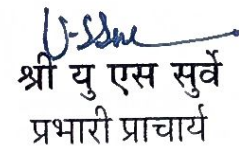 श्री यु एस सुर्वे
प्रभारी प्राचार्य